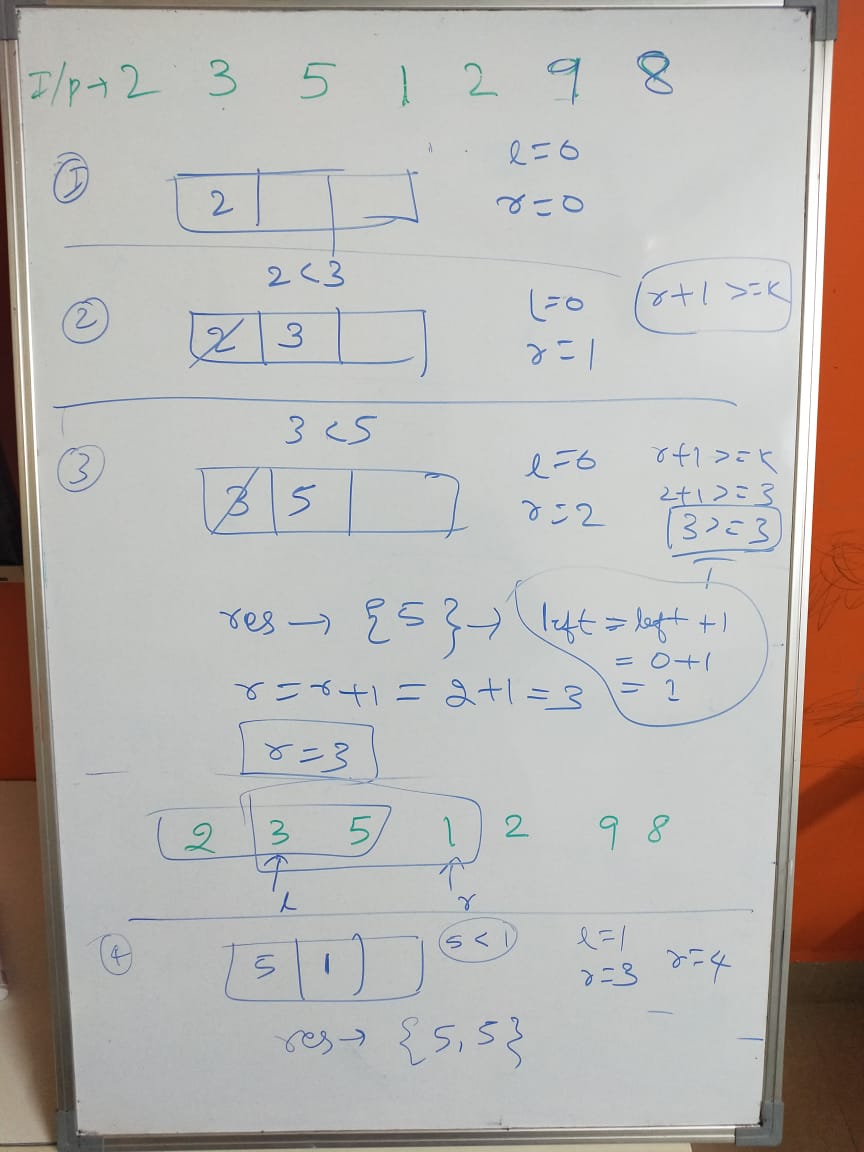 I/p → 2 3 5 1 2 9 8
① l=0
2 r=0
2<3
② l=0 r+1 >=K
2 3 r=1
3<5
③ l=0 r+1>=K
3 5 r=2 2+1>=3
3>=3
res → {5} → left = left +1
= 0+1
r=r+1 = 2+1=3 = 1
r=3
2 3 5 1 2 9 8
l r
④ 5 1 5<1 l=1
r=3 r=4
res → {5,5}